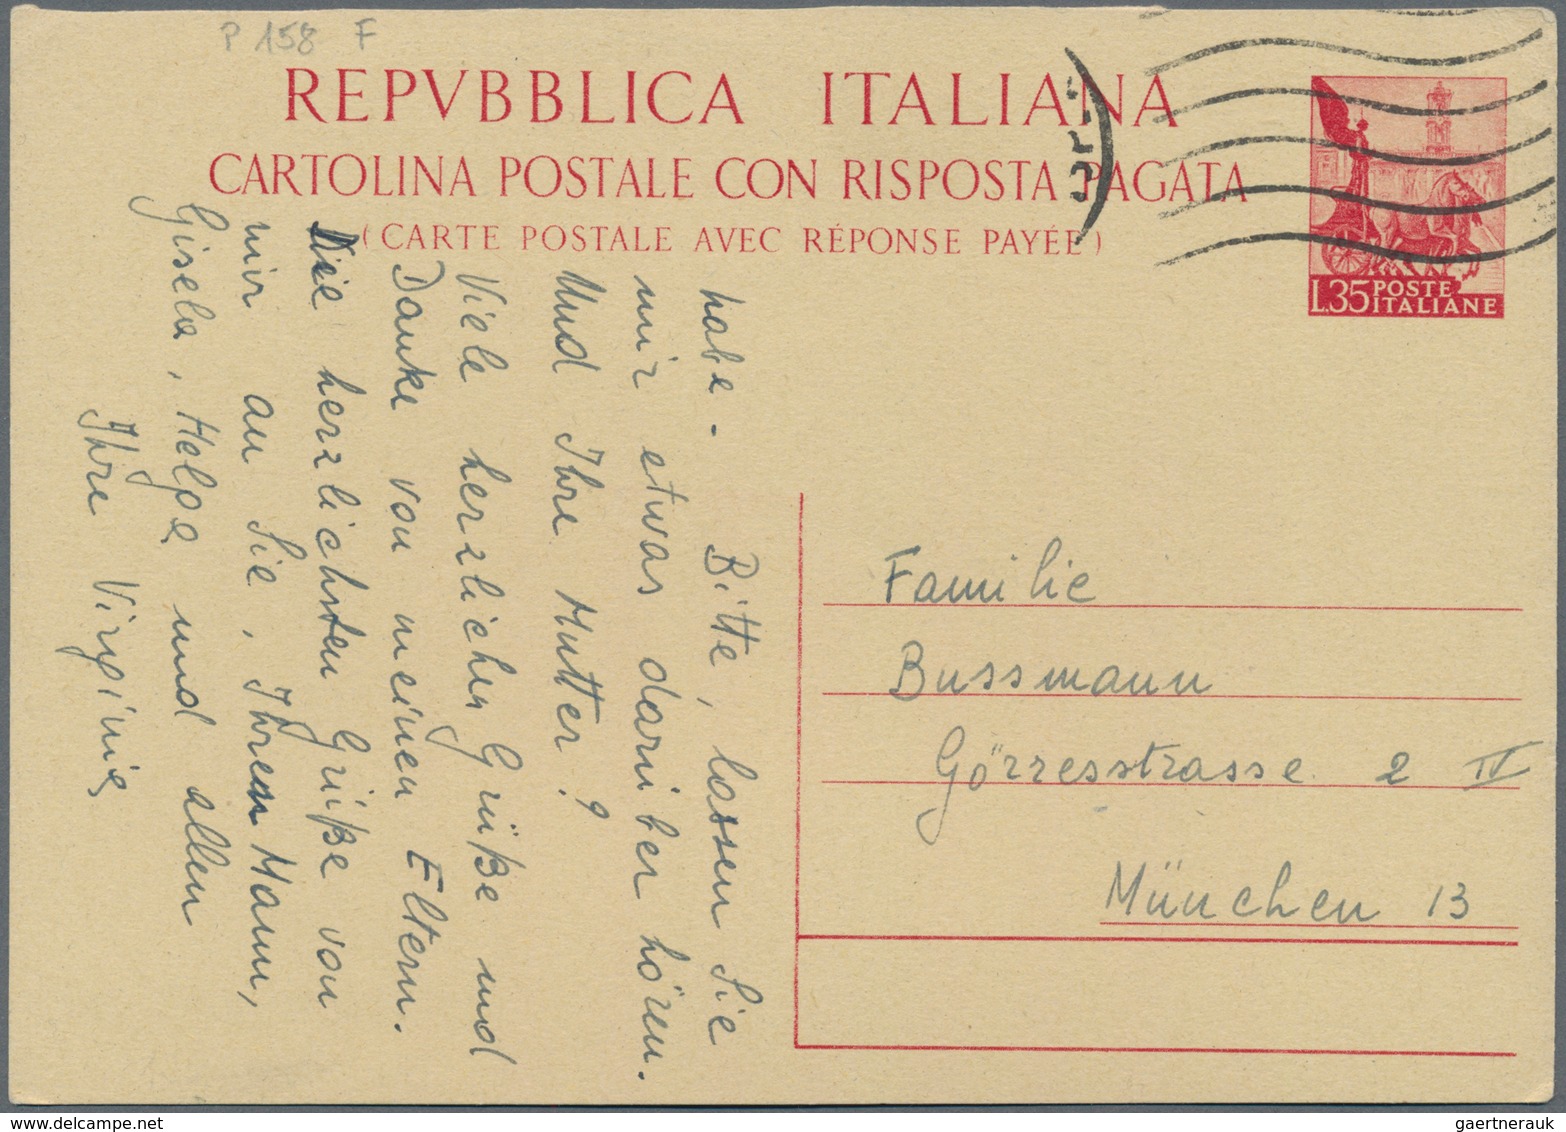 P 158 F
REPVBBLICA ITALIANA
CARTOLINA POSTALE CON RISPOSTA PAGATA
(CARTE POSTALE AVEC RÉPONSE PAYÉE)
L.35 POSTE
ITALIANE
habe. Bitte, lassen Sie
mir etwas darüber hören.
Und Ihre Mutter?
Viele herzlichen Grüße und
Danke von meinen Eltern.
Die herzlichsten Grüße von
mir an Sie, Ihren Mann,
Gisela, Helga und allen
Ihre Virginia
Familie
Bussmann
Görresstrasse 2 IV
München 13
gaertnerauk @ delcampe.net